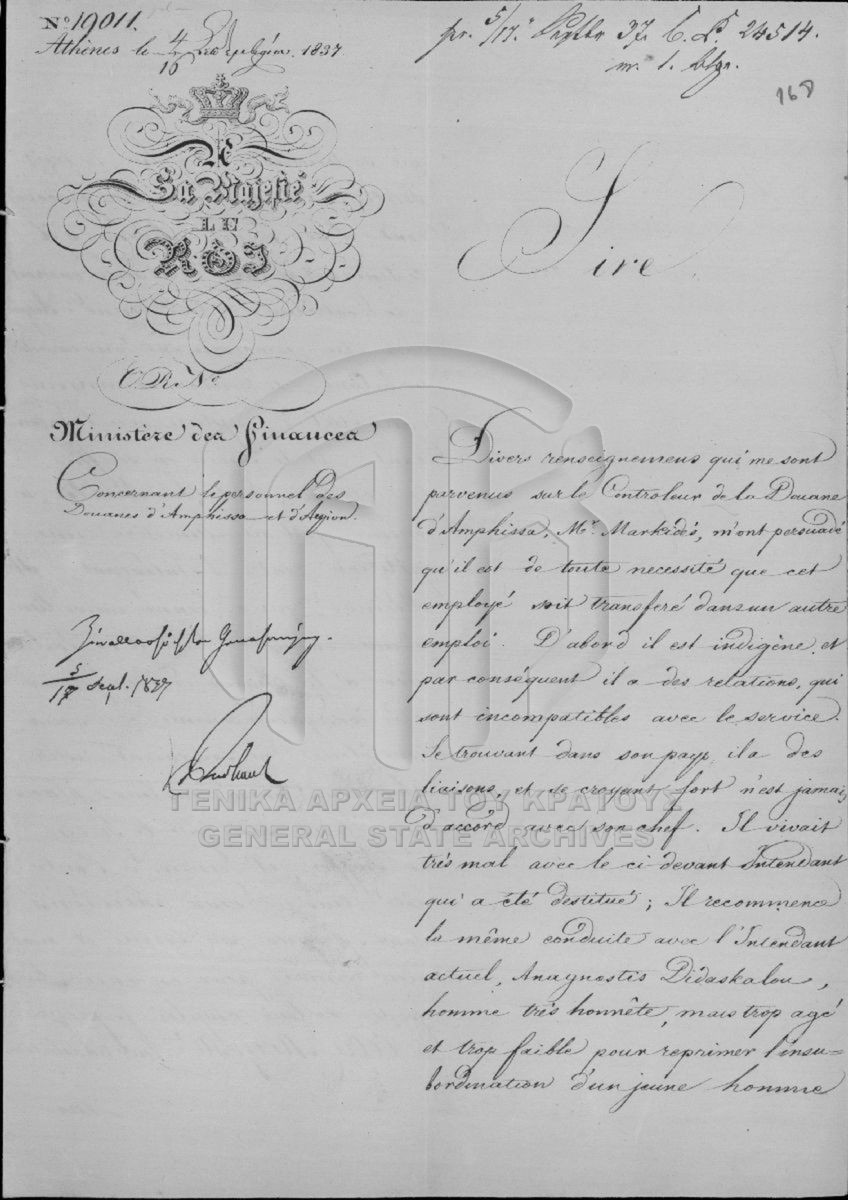 No. 19011.
Athènes le 4/16 1837
pr. 5/17. 37. C. P. 24514.
m. 1.
168
A
Sa Majesté
LE
ROI
Sire
O. R. No.
Ministère des Finances
Concernant le personnel des
Douanes d'Amphissa et d'Aegion.
5/17 Sept. 1837
Divers renseignemens qui me sont
parvenus sur le Controleur de la Douane
d'Amphissa, Mr. Markidés, m'ont persuadé
qu'il est de toute necessité que cet
employé soit transferé dans un autre
emploi. D'abord il est indigène, et
par conséquent il a des relations, qui
sont incompatibles avec le service.
Se trouvant dans son pays, il a des
liaisons, et se croyant fort n'est jamais
d'accord avec son chef. Il vivait
très mal avec le ci devant Intendant
qui a été destitué; Il recommence
la même conduite avec l'Intendant
actuel, Anagnostis Didaskalou,
homme très honnête, mais trop agé
et trop faible pour reprimer l'insu=
bordination d'un jeune homme
ΓΕΝΙΚΑ ΑΡΧΕΙΑ ΤΟΥ ΚΡΑΤΟΥΣ
GENERAL STATE ARCHIVES